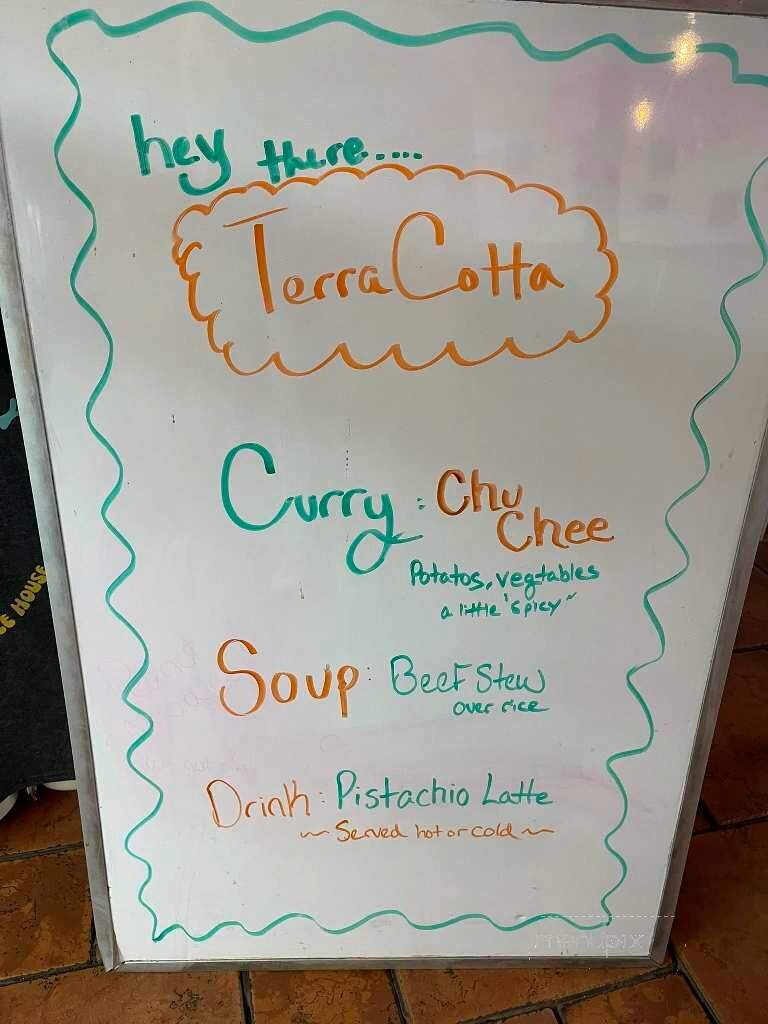 hey there....
Terra Cotta
Curry : Chu
Chee
Potatos, vegtables
a little "spicy"
Soup : Beef Stew
over rice
Drink : Pistachio Latte
~ Served hot or cold ~
House
menupix